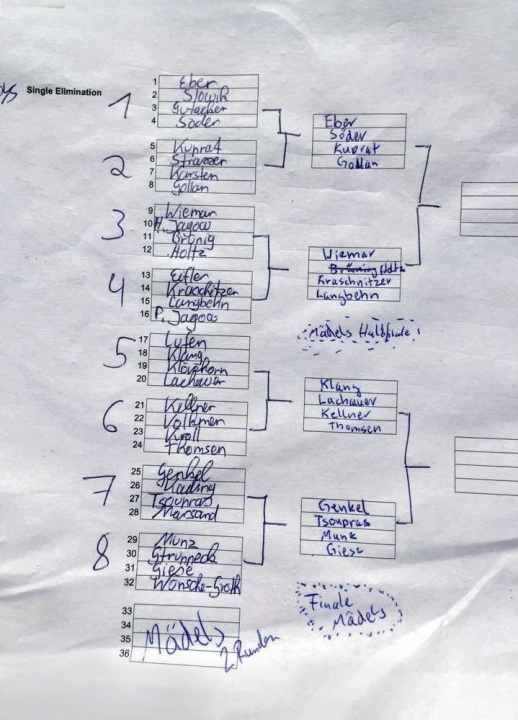 Single Elimination
1
1 Eber
2 Slowik
3 Gutacker
4 Söder
2
5 Kuprat
6 Strasser
7 Karsten
8 Gollan
3
9 Wieman
10 H. Jagow
11 Brünig
12 Holtz
4
13 Eifler
14 Kraschitzer
15 Langbehn
16 P. Jagow
5
17 Lufen
18 Klang
19 Klövekorn
20 Lachauer
6
21 Kellner
22 Volkmen
23 Kyroll
24 Thomsen
7
25 Genkel
26
27 Tsoupras
28 Marsand
8
29 Munz
30 Struppeck
31 Giese
32 Wönsche-Groth
33
34
35
36
Mädels
2 Runden
Eber
Söder
Kuprat
Gollan
Wiemar
Holtz
Kraschnitzer
Langbehn
Mädels Halbfinale
Klang
Lachauer
Kellner
Thomsen
Genkel
Tsoupras
Munk
Giese
Finale
Mädels